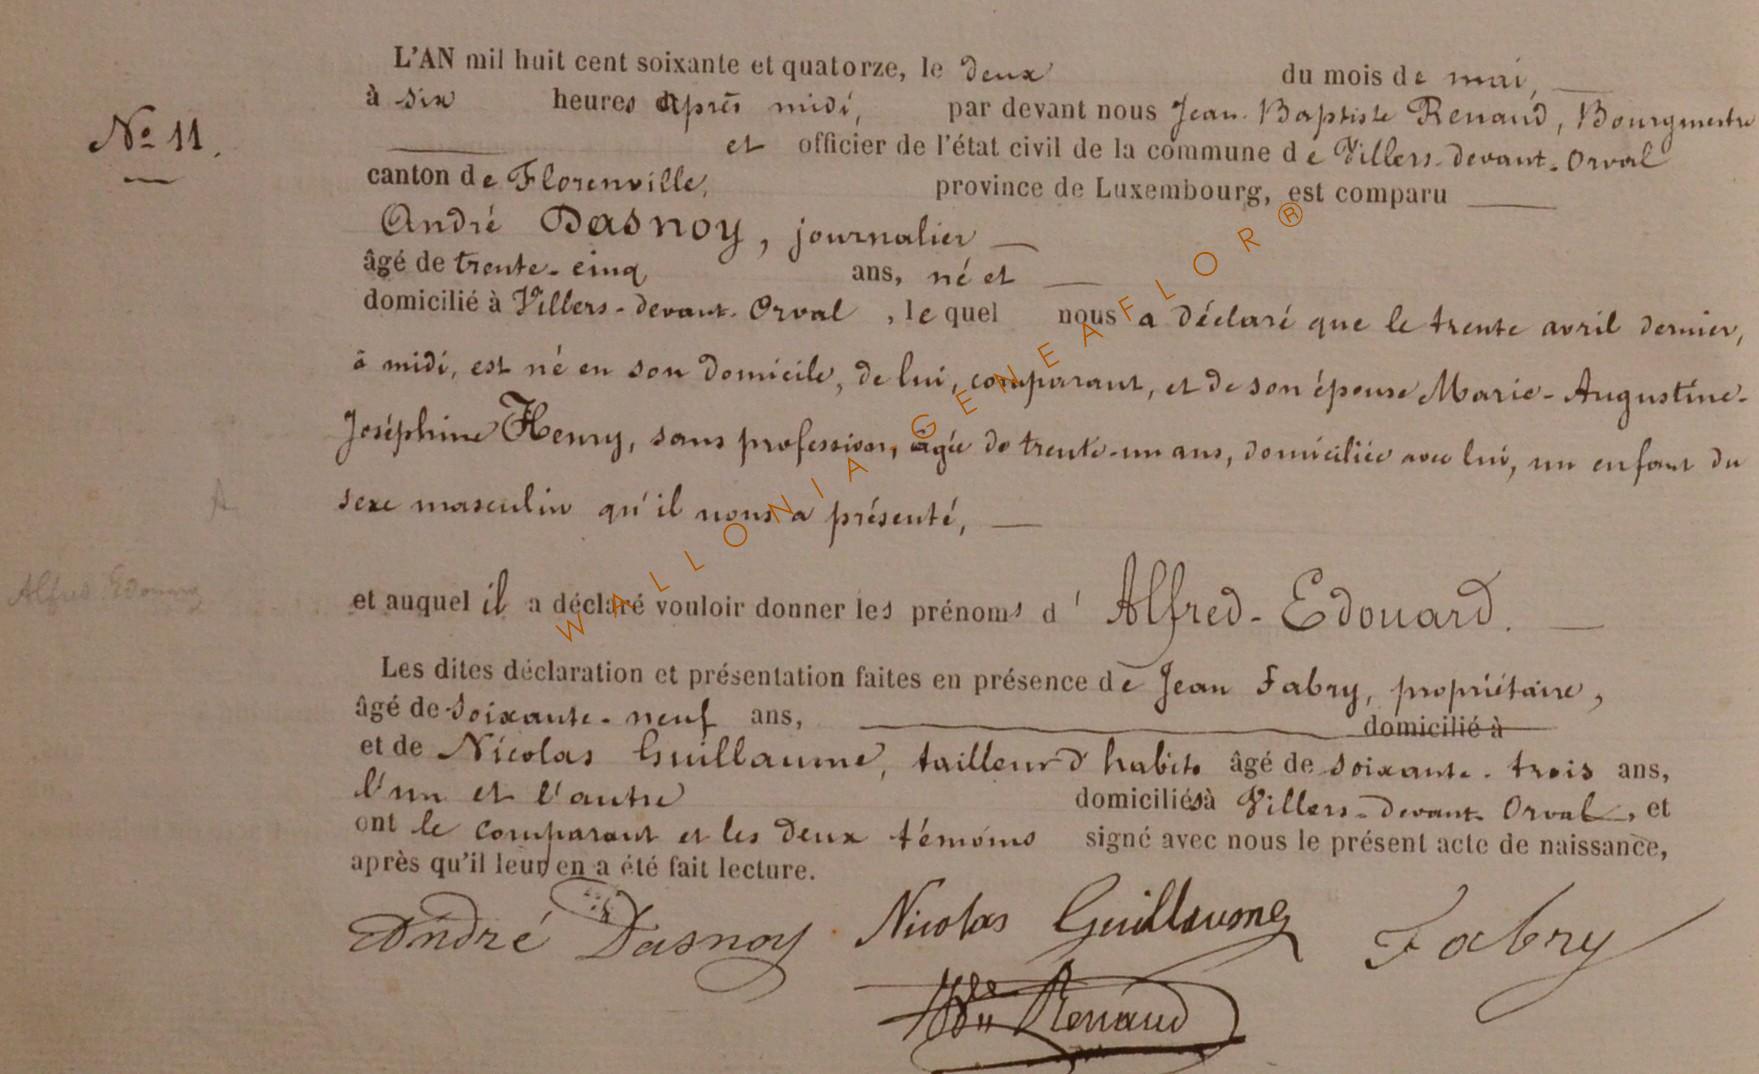 L'AN mil huit cent soixante et quatorze, le deux du mois de mai,
à six heures après midi, par devant nous Jean-Baptiste Renaud, Bourgmestre
Nº 11.
et officier de l'état civil de la commune de Villers-devant-Orval
canton de Florenville, province de Luxembourg, est comparu
André Dasnoy, journalier
âgé de trente-cinq ans, né et
domicilié à Villers-devant-Orval, lequel nous a déclaré que le trente avril dernier,
à midi, est né en son domicile, de lui, comparant, et de son épouse Marie-Augustine-
Joséphine Henry, sans profession, agée de trente-un ans, domiciliée avec lui, un enfant du
sexe masculin qu'il nous a présenté,
Alfred Edouard
et auquel il a déclaré vouloir donner les prénoms d'Alfred-Edouard.
Les dites déclaration et présentation faites en présence de Jean Fabry, propriétaire,
âgé de soixante-neuf ans, domicilié à
et de Nicolas Guillaume, tailleur d'habits âgé de soixante-trois ans,
l'un et l'autre domiciliés à Villers-devant-Orval, et
ont le comparant et les deux témoins signé avec nous le présent acte de naissance,
après qu'il leur en a été fait lecture.
André Dasnoy Nicolas Guillaume Fabry
Renaud
WALLONIA GENEAFLOR®